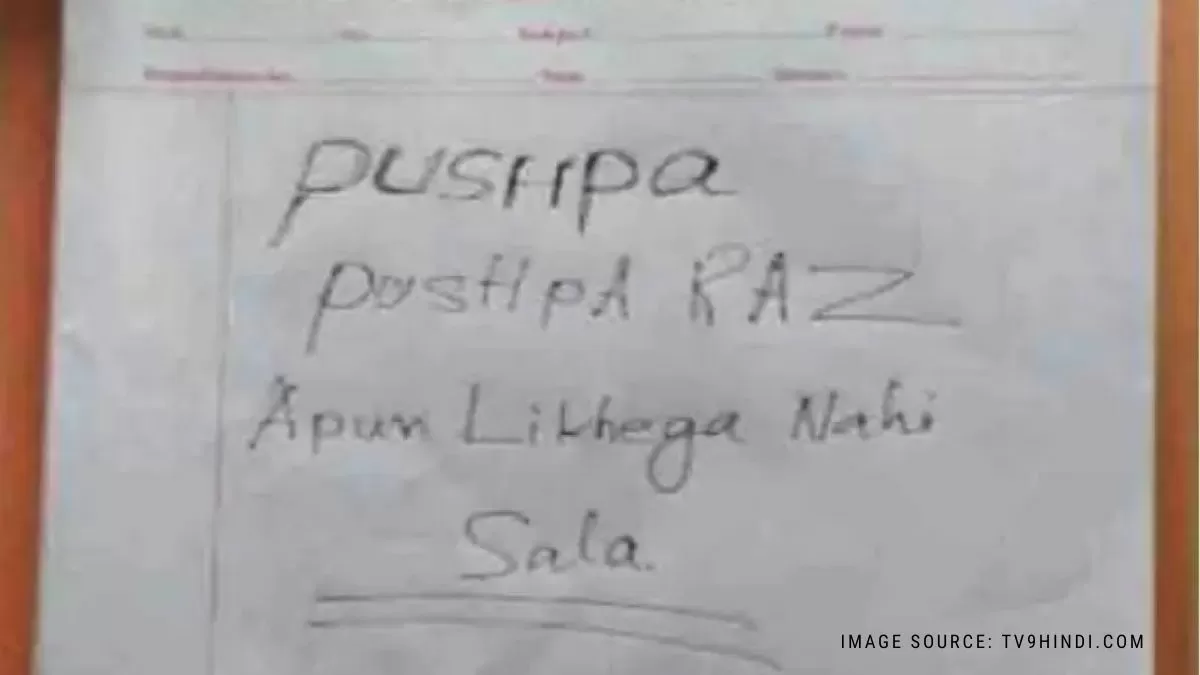 PUSHPa
PUSHPA RAZ
Apun Likhega Nahi
Sala.
IMAGE SOURCE: TV9HINDI.COM